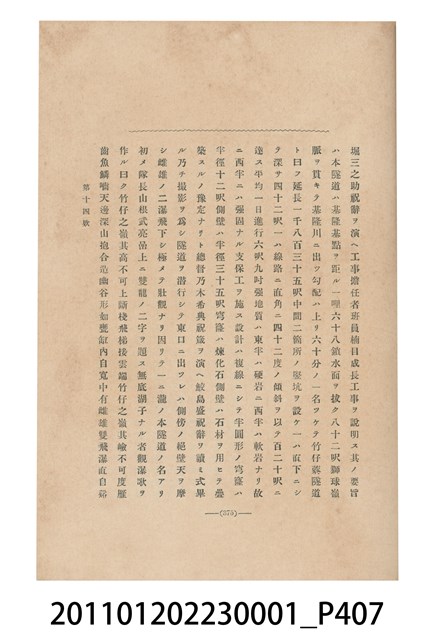 堀三之助祝辭ヲ演ヘ工事擔任者班員楠目成長工事ヲ說明ス其ノ要旨
ハ本隧道ハ基隆基點ヲ距ル一哩六十八鎖水面ヲ拔ク八十二呎獅球嶺
脈ヲ貫キテ基隆川ニ出ツ勾配ハ上リ六十分ノ一名ツケテ竹仔寮隧道
ト曰フ延長一千八百三十五呎中間二箇所ノ竪坑ヲ設ケ一ハ直下ニシ
テ深サ四十二呎一ハ線路ニ直角ニ四十二度ノ傾斜ヲ以テ百二十呎ニ
達ス平均一日進行六呎九吋强地質ハ東半ハ硬岩ニ西半ハ軟岩ナリ故
ニ西半ニハ强固ナル支保工ヲ施ス設計ハ複線ニシテ半圓形ノ穹窿ハ
半徑十二呎側壁ハ半徑三十五呎穹窿ハ煉化石側壁ハ石材ヲ用ヒテ疊
築スルノ豫定ナリト總督乃木希典祝箴ヲ演ヘ鮫島盛祝辭ヲ讀ミ式畢
ル乃チ撮影ヲ爲シ隧道ヲ潛行シテ東口ニ出フレハ側傍ノ絕壁天ヲ摩
シ雌雄ノ二瀑飛下シ極メテ壯觀ナリ因リテ一ニ瀧ノ本隧道ノ名アリ
初メ隊長山根武亮嵒上ニ雙龍ノ二字ヲ題ス無底湖子ナル者觀瀑歌ヲ
作ル曰ク竹仔之嶺其高不可上諸棧飛梯接雲端竹仔之嶺其嶮不可度雁
齒魚鱗嚙天邊深山抱合造幽谷形如甕缸內自寬中有雌雄雙飛瀑直自
第十四款
(375)
201101202230001_P407